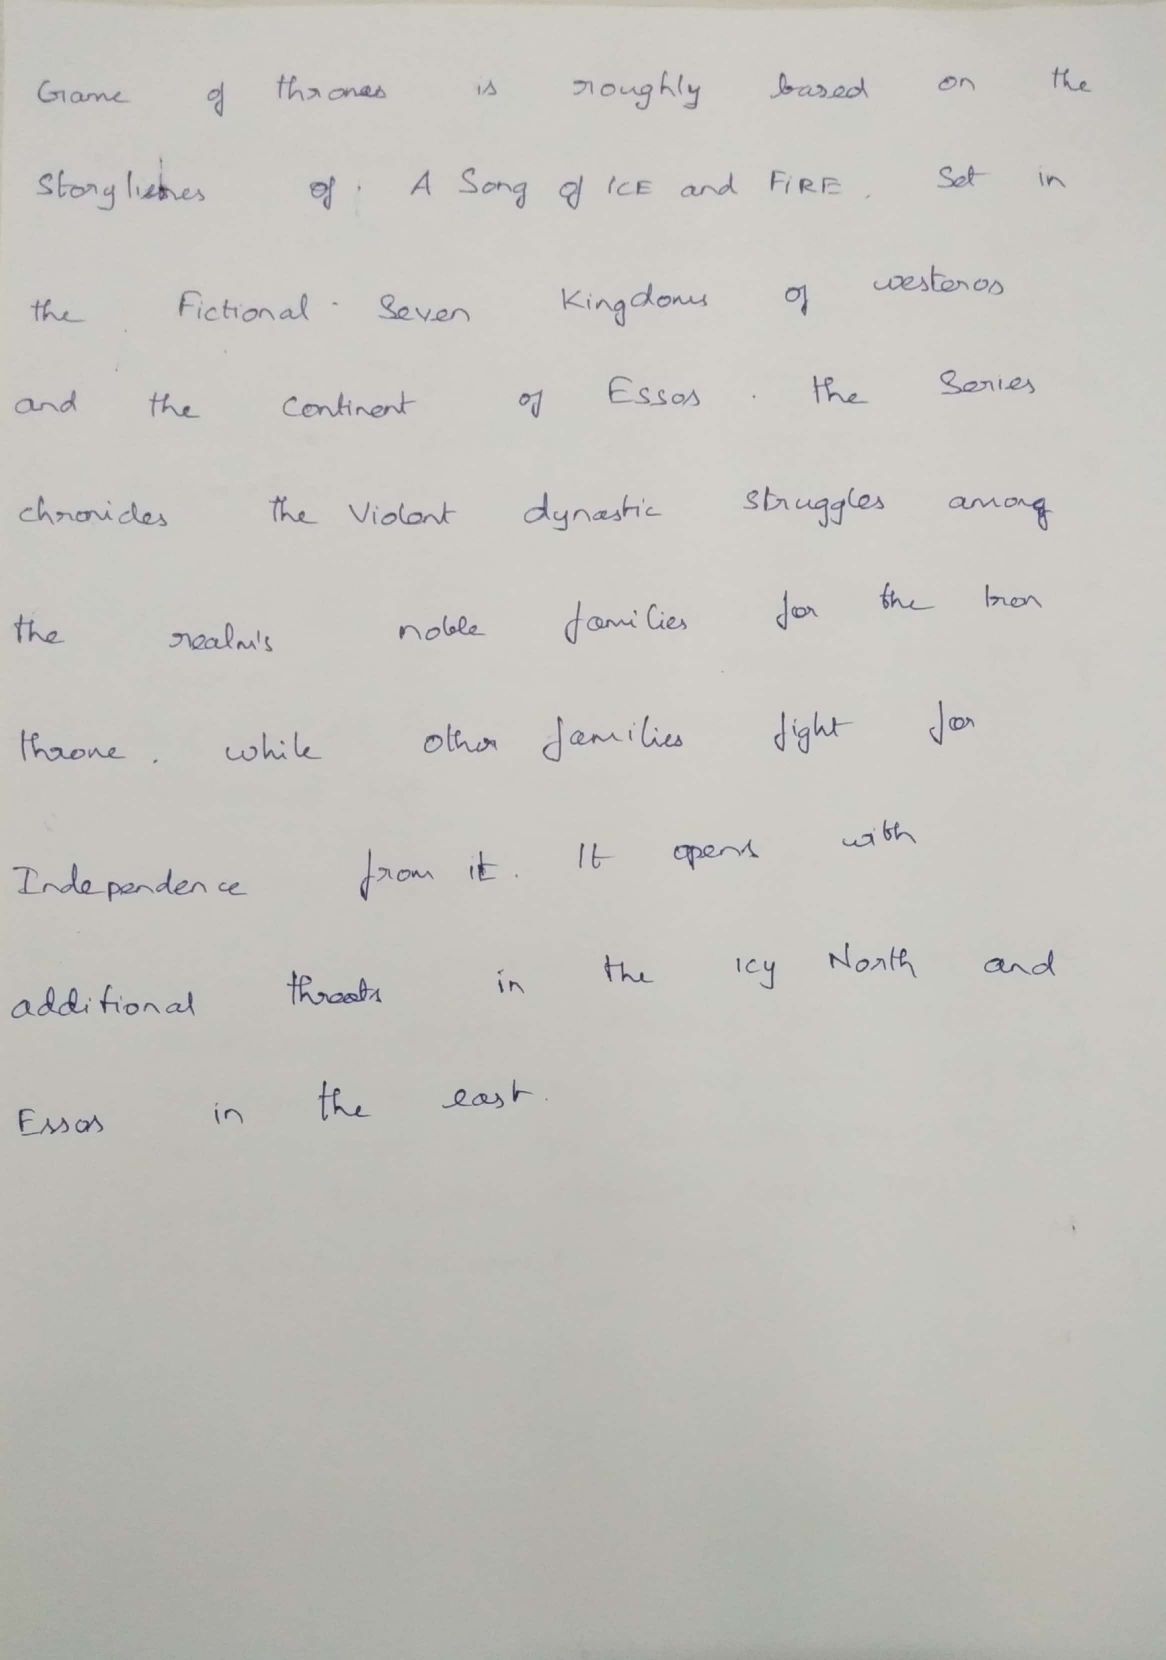 Game of thrones is roughly based on the
Storylines of A Song of ICE and FiRE. Set in
the Fictional Seven Kingdoms of westeros
and the continent of Essos. the Series
chronicles the Violent dynastic struggles among
the realm's noble families for the Iron
throne. while other families fight for
Independence from it. It opens with
additional threats in the Icy North and
Essos in the east.